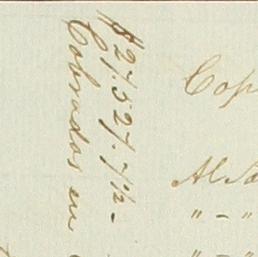 $27.527.7½-
Cobrados en
Cop
Al Sa
" - "
" - "